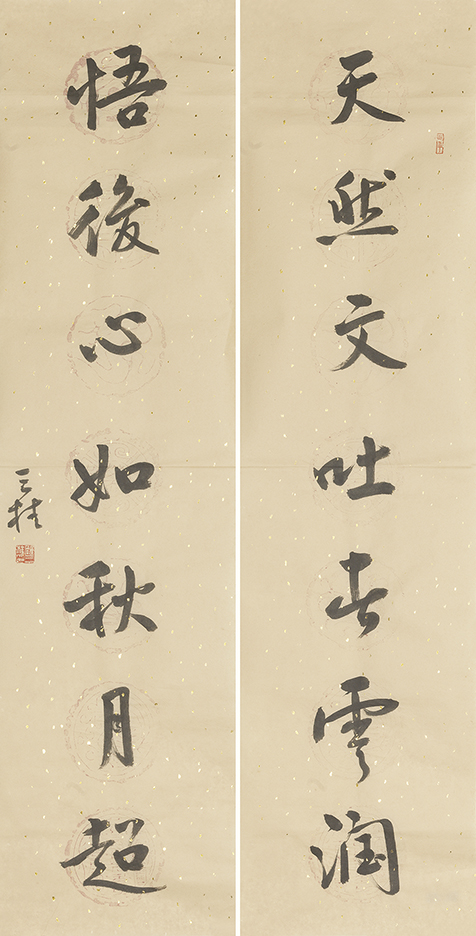 天然文吐春雲润
悟後心如秋月超
三桂